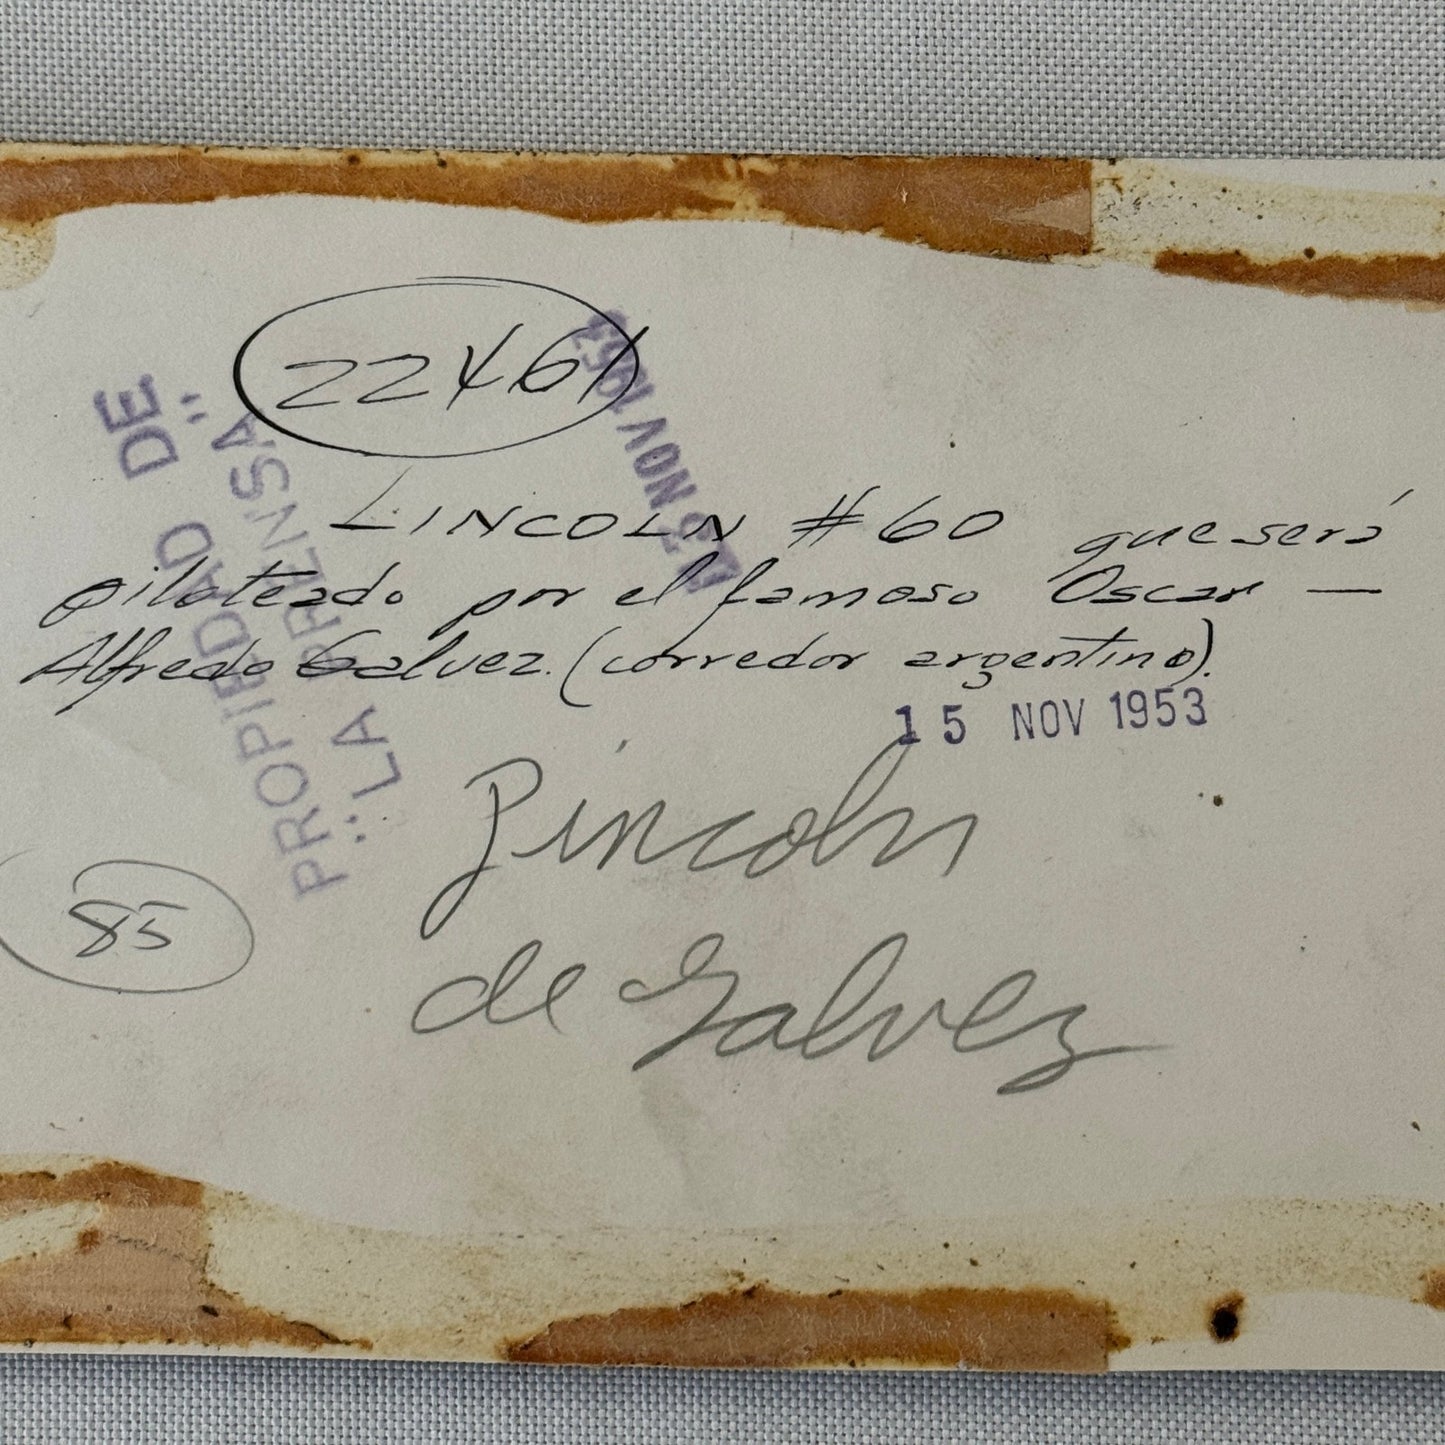 22461
NOV 1953
PROPIEDAD DE
"LA PRENSA"
LINCOLN #60 que será
piloteado por el famoso Oscar —
Alfredo Galvez. (corredor argentino).
15 NOV 1953
Lincoln
de Galvez
85